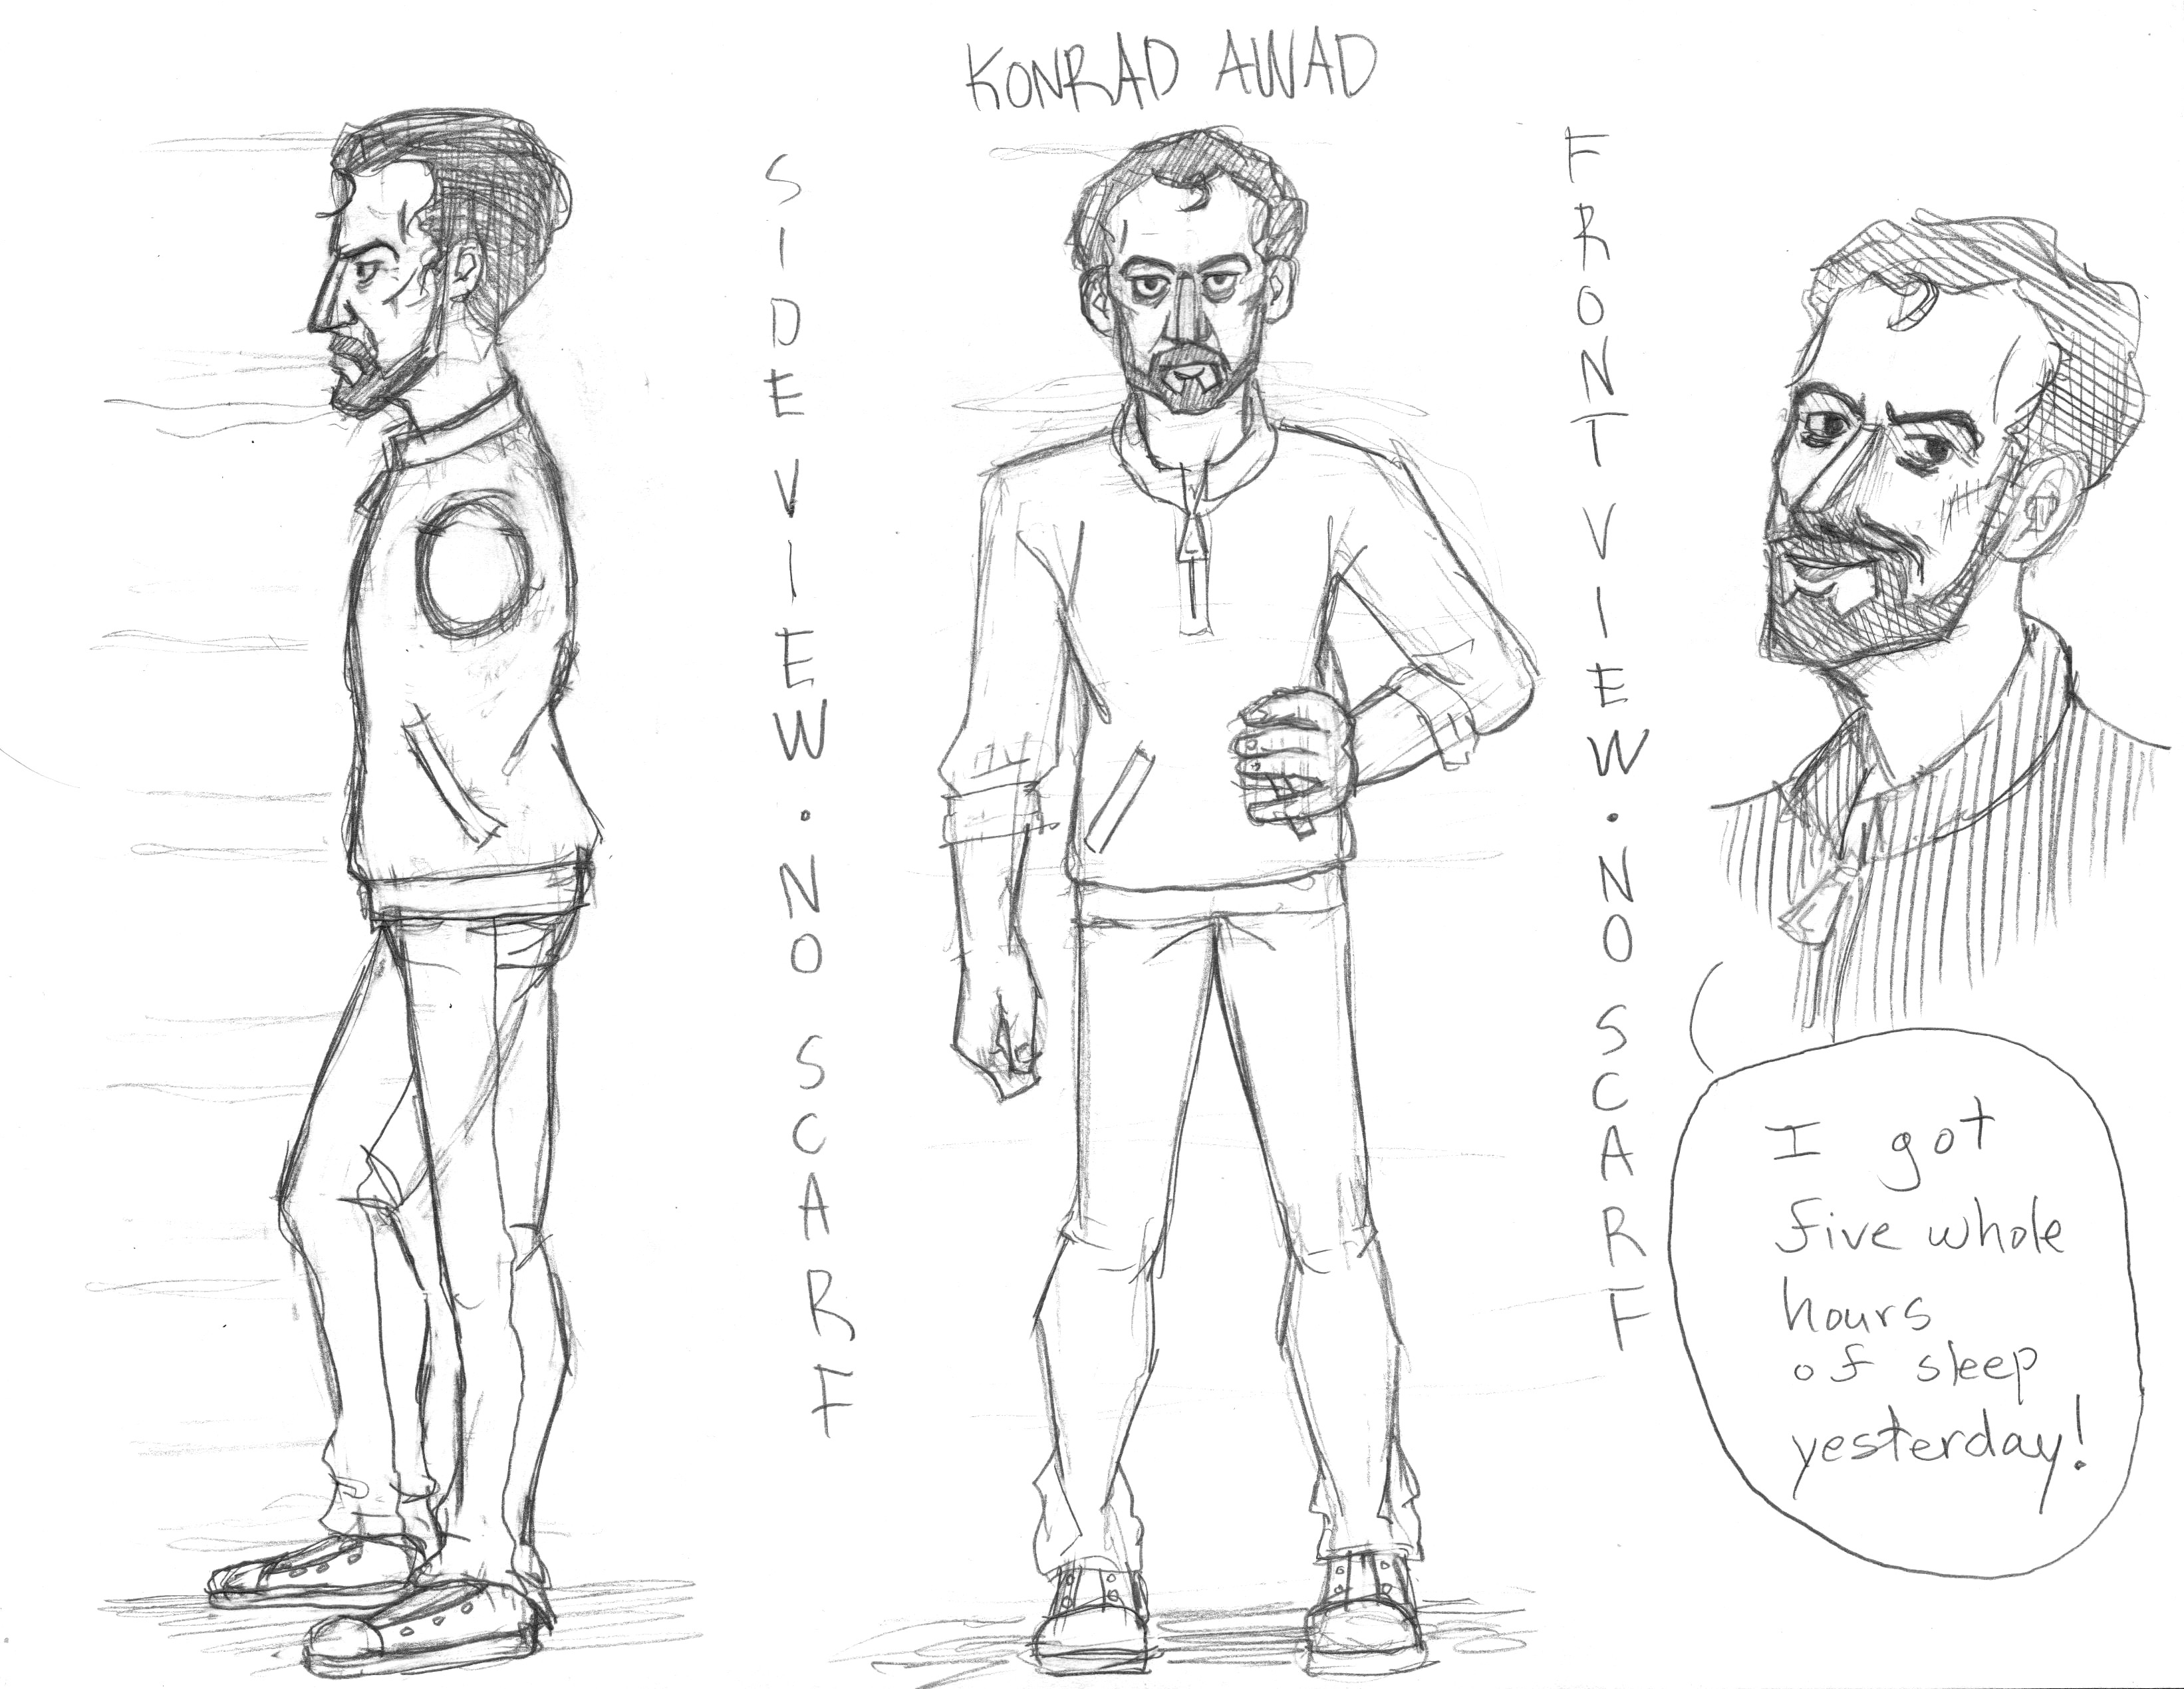 KONRAD AWAD
SIDE VIEW · NO SCARF
FRONT VIEW · NO SCARF
I got
five whole
hours
of sleep
yesterday!